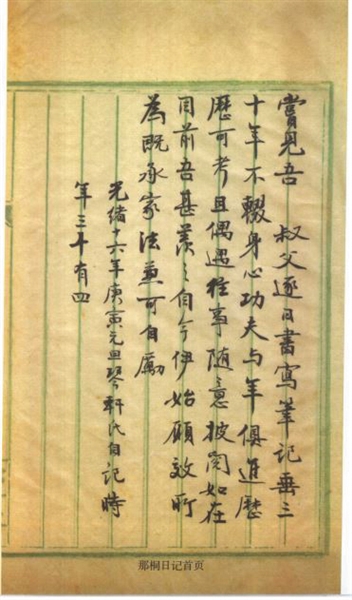 嘗見吾 叔父逐日書寫筆記垂三
十年不輟身心功夫與年俱進歷
歷可考且偶遇往事隨意披閱如在
目前吾甚羨之自今伊始願效所
為既承家法兼可自勵
光緒十六年庚寅元旦琴軒氏自記時
年三十有四
那桐日记首页